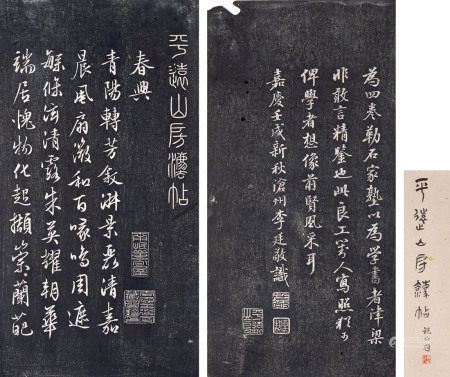 平遠山房法帖
春興
青陽轉芳叙淋景磊清嘉
晨風扇微和百啄鳴周遮
緜條泫清露朱英耀朝華
端居愧物化起擷崇蘭葩
為四卷勒石家塾以為學書者津梁
非敢言精鑒也此良工寫人寫照猶可
俾學者想像前賢風采耳
嘉慶壬戌新秋滄州李廷敬識
平遠山房法帖